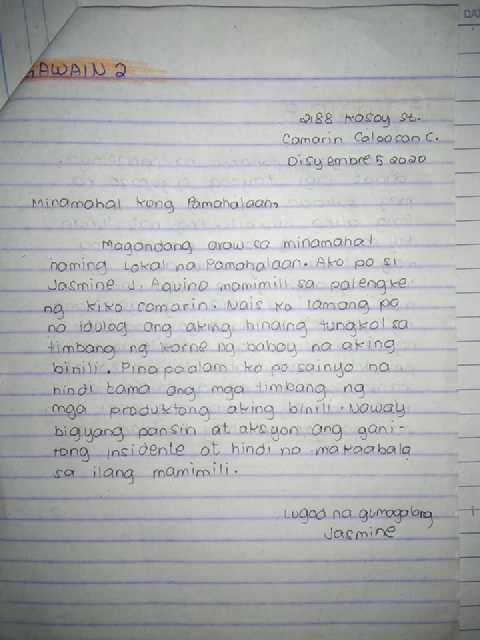 GAWAIN 2
2188 Kasoy st.
Camarin Caloocan C.
Disyembre 5 2020
Minamahal kong Pamahalaan,
Magandang araw sa minamahal
naming Lokal na Pamahalaan. Ako po si
Jasmine J. Aquino mamimili sa palengke
ng kiko camarin. Nais ko lamang po
na idulog ang aking hinaing tungkol sa
timbang ng karne ng baboy na aking
binili. Pinapaalam ko po sainyo na
hindi tama ang mga timbang ng
mga produktong aking binili. Naway
bigyang pansin at aksyon ang gani-
tong insidente at hindi na makaabala
sa ilang mamimili.
Lugod na gumagalang
Jasmine